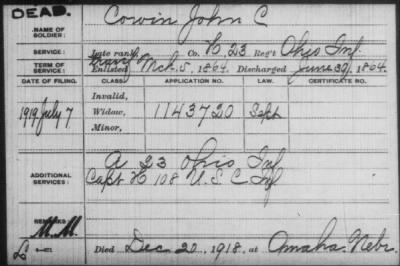 DEAD.
NAME OF SOLDIER: Cowin John C
SERVICE: Late rank, Co. H, 23 Reg't Ohio Inf.
TERM OF SERVICE: Enlisted Mch. 5, 1864. Discharged June 30, 1864.
DATE OF FILING. CLASS. APPLICATION NO. LAW. CERTIFICATE NO.
Invalid,
1919 July 7 Widow, 1143720 Sept
Minor,
ADDITIONAL SERVICES: A 23 Ohio Inf
Capt H 108 U. S. C Inf
REMARKS:
M.M.
Died Dec 20, 1918, at Omaha. Nebr.